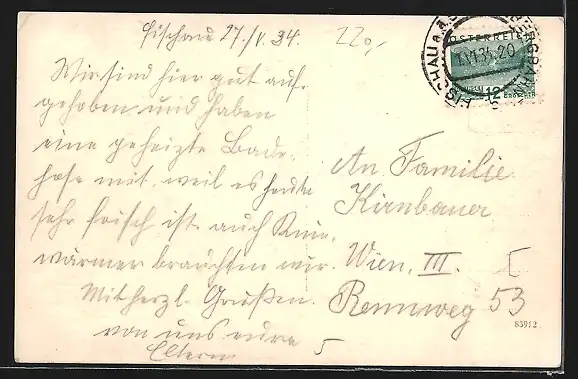 Fischau 27./V. 34.
220,-
Wir sind hier gut auf-
gehoben und haben
eine geheizte Bade-
hose mit, weil es heute
sehr frisch ist. auch
wärmer brauchten wir.
Mit herzl. Grüßen.
von uns eure
Eltern
An Familie
Kirnbauer
Wien, III.
Rennweg 53
ÖSTERREICH
1.VI.34.20
FISCHAU a.
12
GROSCHEN
83912